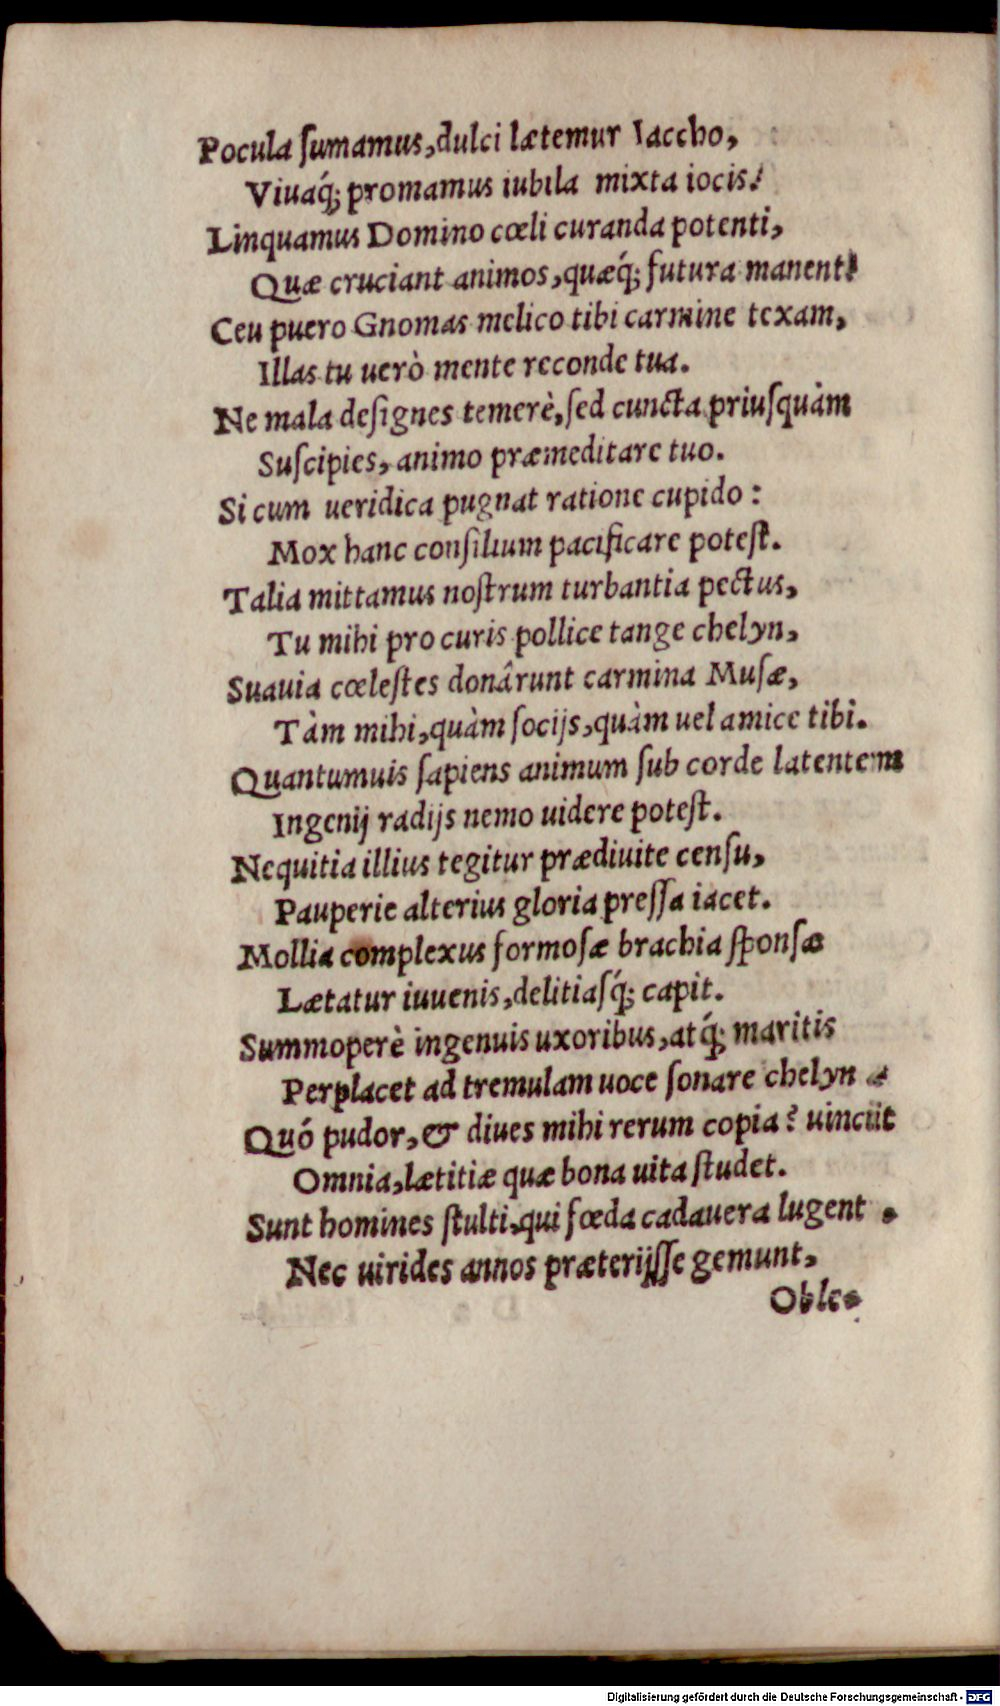 Pocula ſumamus, dulci lætemur Iaccho,
Viuaq́; promamus iubila mixta iocis.
Linquamus Domino cœli curanda potenti,
Quæ cruciant animos, quæq́; futura manent.
Ceu puero Gnomas melico tibi carmine texam,
Illas tu uerò mente reconde tua.
Ne mala deſignes temerè, ſed cuncta priuſquàm
Suſcipies, animo præmeditare tuo.
Si cum ueridica pugnat ratione cupido:
Mox hanc conſilium pacificare poteſt.
Talia mittamus noſtrum turbantia pectus,
Tu mihi pro curis pollice tange chelyn,
Suauia cœleſtes donârunt carmina Muſæ,
Tàm mihi, quàm ſocijs, quàm uel amice tibi.
Quantumuis ſapiens animum ſub corde latentem
Ingenij radijs nemo uidere poteſt.
Nequitia illius tegitur prædiuite cenſu,
Pauperie alterius gloria preſſa iacet.
Mollia complexus formoſæ brachia ſponſæ
Lætatur iuuenis, delitiaſq́; capit.
Summoperè ingenuis uxoribus, atq́; maritis
Perplacet ad tremulam uoce ſonare chelyn.
Quó pudor, & diues mihi rerum copia? uincit
Omnia, lætitiæ quæ bona uita ſtudet.
Sunt homines ſtulti, qui fœda cadauera lugent.
Nec uirides annos præterijſſe gemunt,
Oble-
Digitalisierung gefördert durch die Deutsche Forschungsgemeinschaft - DFG